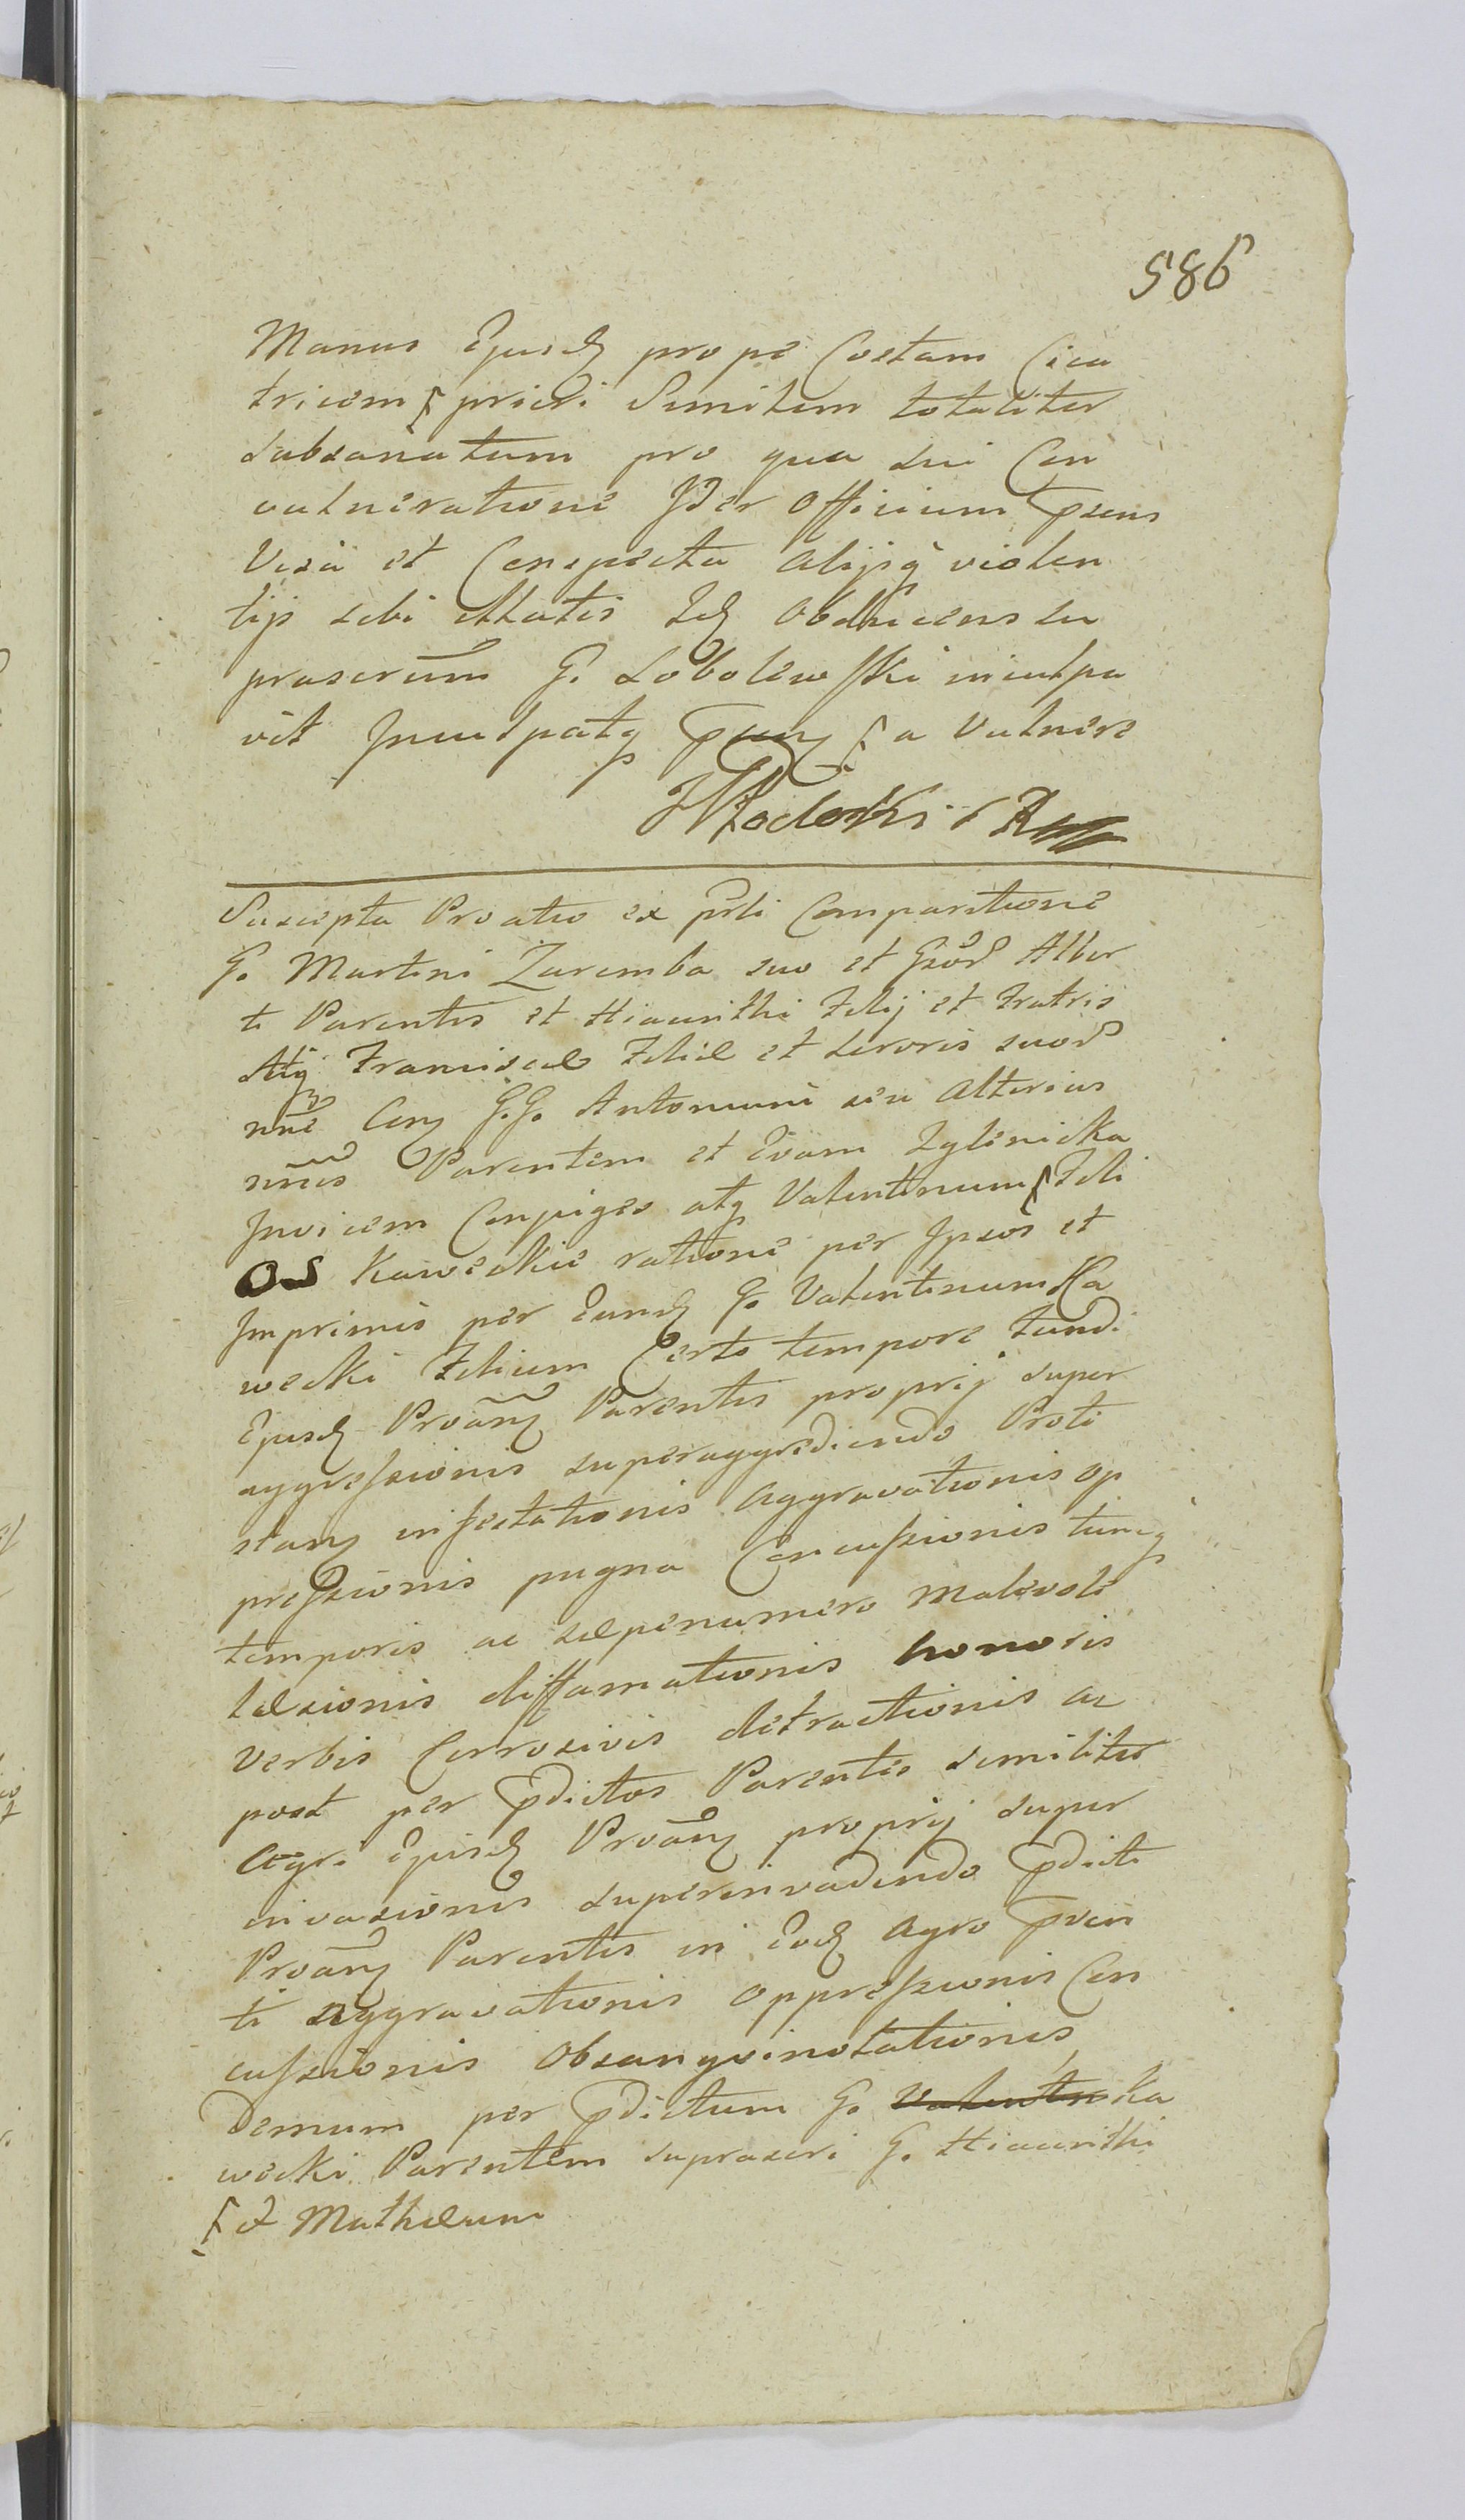 586
Manus Ejusd prope Costam Cica
tricem priori Similem totaliter
subsanatam pro qua sui Con
vulneratione Pder Officium pns
Visa et Conspecta alijsq violen
tijs sibi illatis Id Obducens su
prascrum G. Sobolewski inculpa
vit Inculpatq pnu a Vulnere
Suscepta Proatio ex prli Comparitione
G. Martini Zaremba suo et Gsor Alber
ti Parentis et Hiacinthi Filij et Fratris
Atq Franciscæ Filiæ et Sororis suor
nne Con G.G. Antonium seu Alterius
nnis Parentem et Evam Zglinicka
Invicem Conjuges atq Valentinum Fili
os Kaweckie ratione per Ipsos et
Imprimis per Eund G. Valentinum Ka
wecki Filium Certo tempore Fundi
Ejusd Proan Parentis proprij super
aggressionis superaggrediendo Proti
stan infestationis aggravationis op
pressionis pugna Concussionis tuncq
temporis ac sæpenumero malevole
læsionis diffamationis honoris
verbis Corrosivis detractionis ac
post per pdictos Parentes similiter
Agri Ejusd Proan proprij super
invasionis superinvadendo pdicti
Proan Parentis in Eod Agro pven
ti aggravationis oppressionis Con
cussionis Obsangvinolationis
Demum per pdictum G. Valentin Ka
wecki Parentem suprascri G. Hiacinthi
et Mathæum